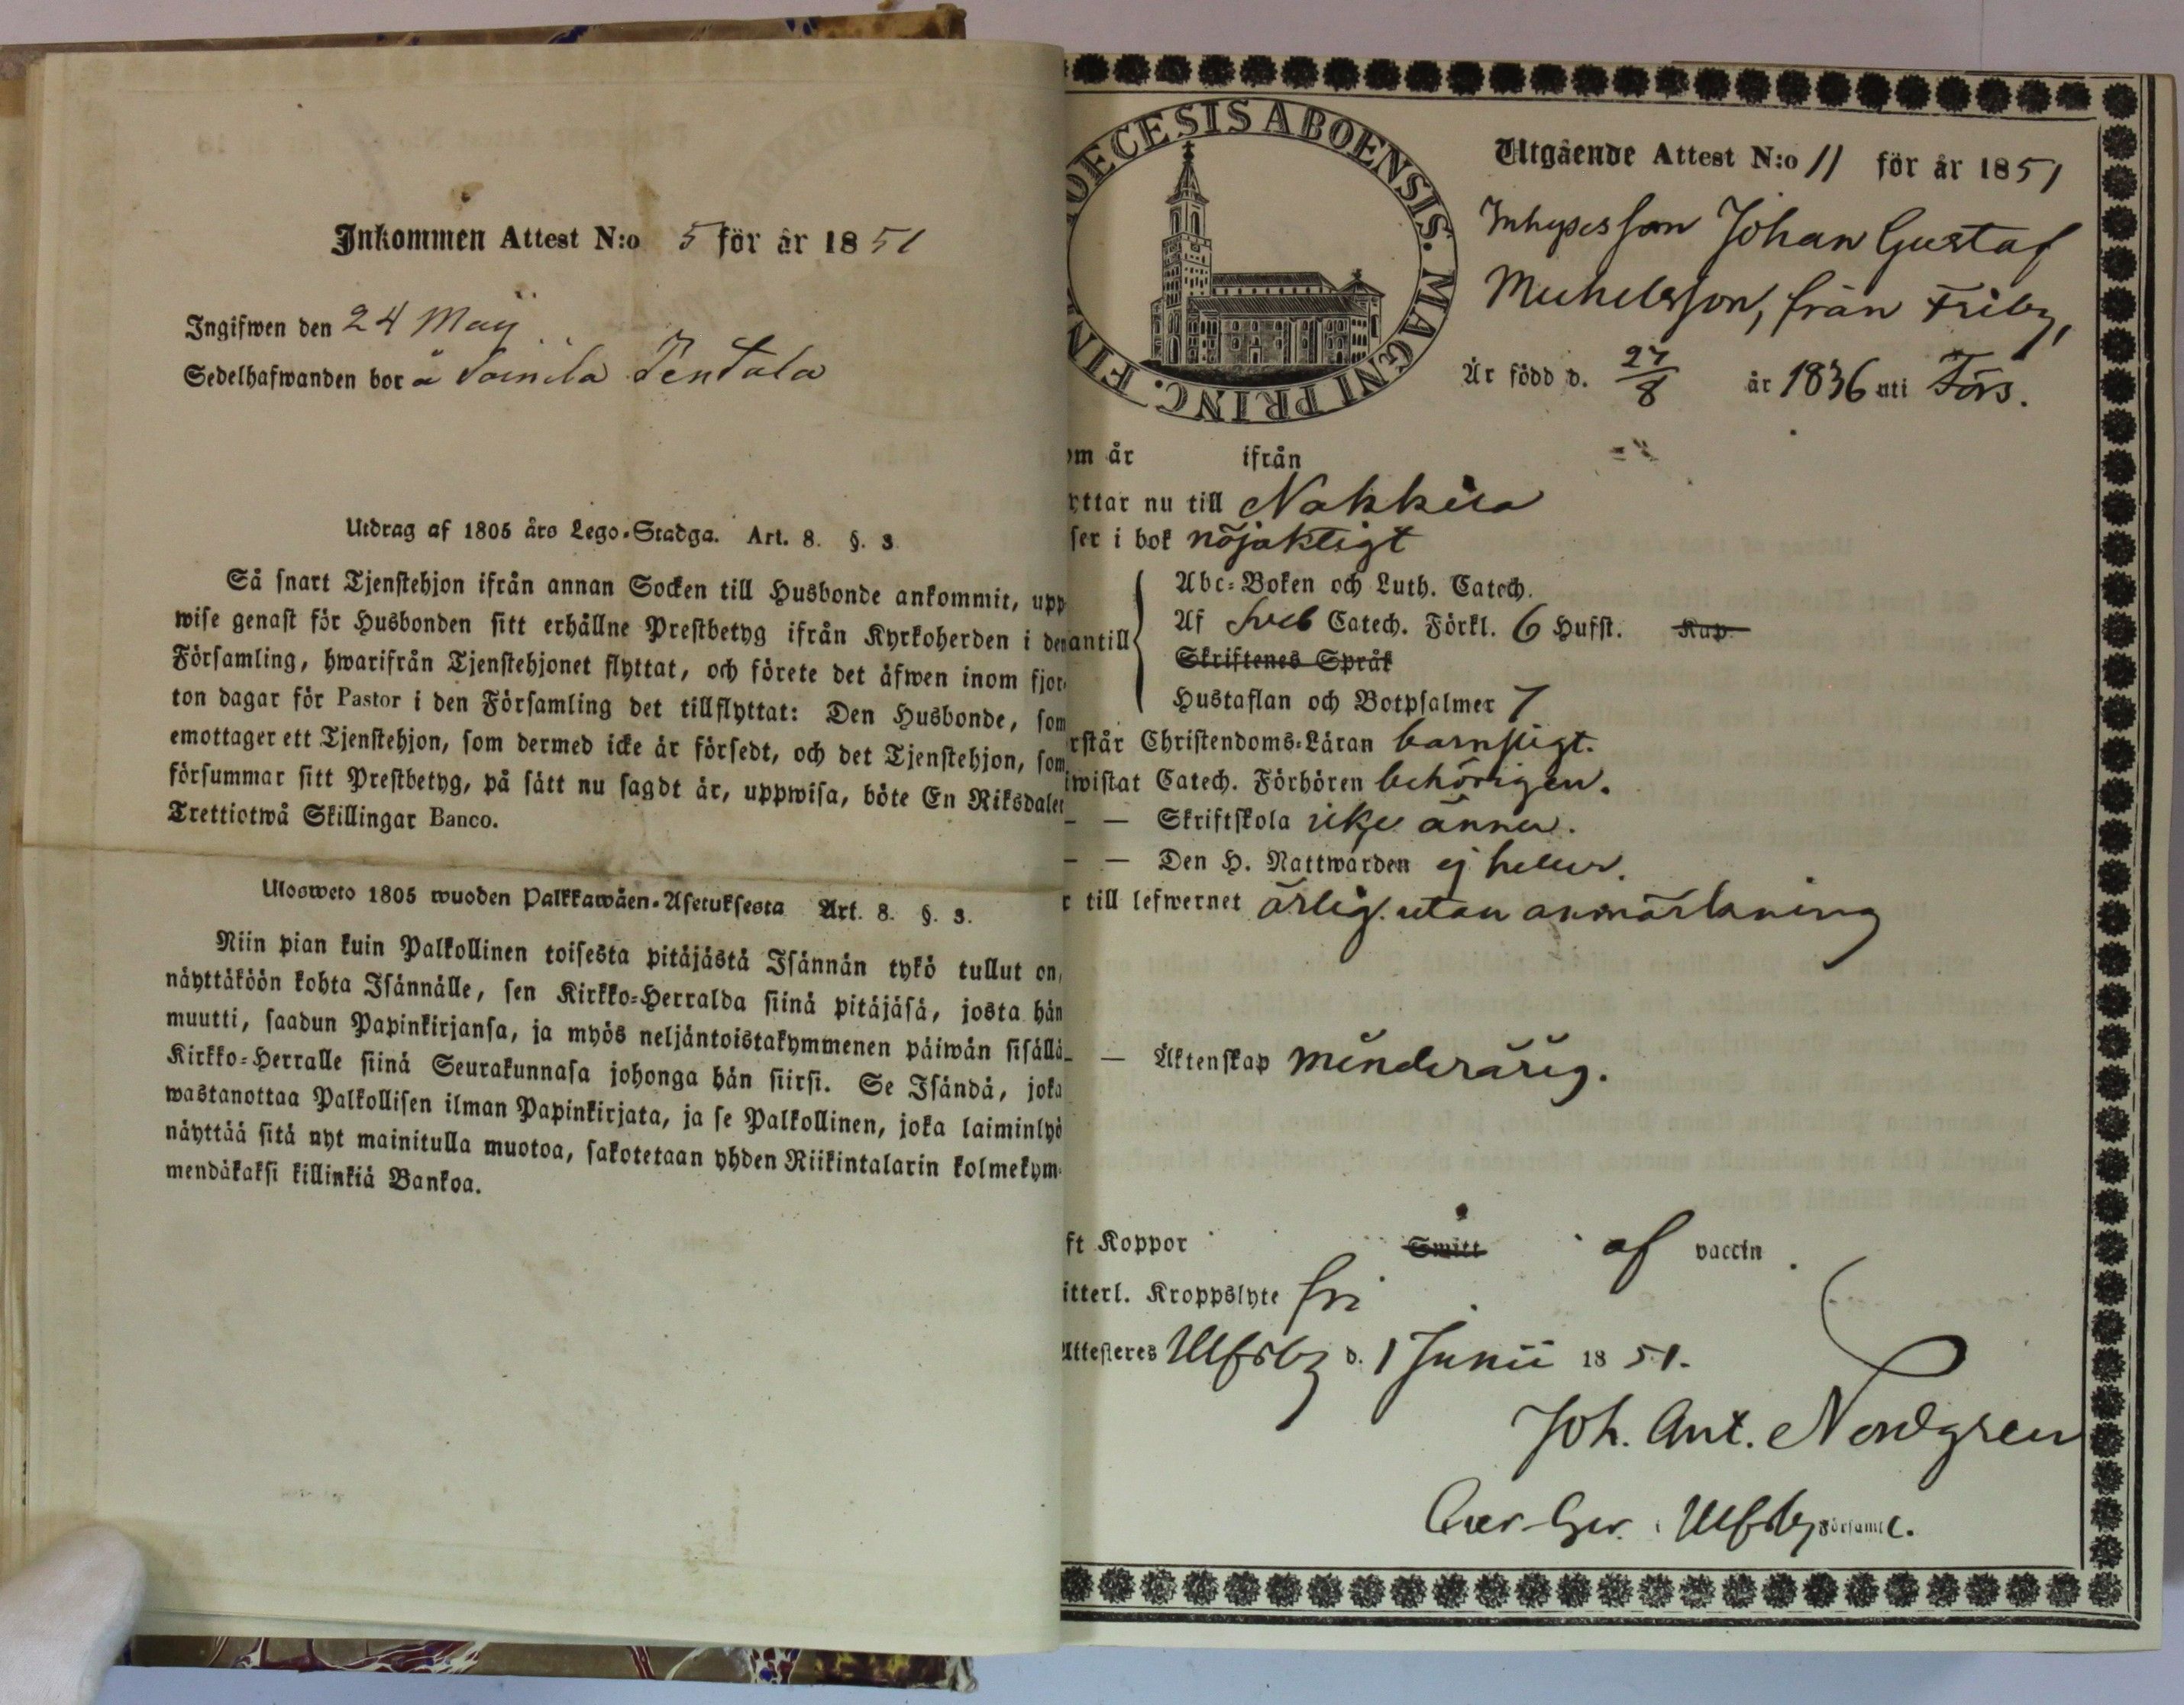 Inkommen Attest N:o 5 för år 1851
Ingifwen den 24 Maij
Sedelhafwanden bor å Soinila Pentala
Utdrag af 1805 års Lego-Stadga. Art. 8. §. 3
Så snart Tjenstehjon ifrån annan Socken till Husbonde ankommit, upp
wise genast för Husbonden sitt erhållne Prestbetyg ifrån Kyrkoherden i den
Församling, hwarifrån Tjenstehjonet flyttat, och förete det äfwen inom fjor-
ton dagar för Pastor i den Församling det tillflyttat: Den Husbonde, som
emottager ett Tjenstehjon, som dermed icke är försedt, och det Tjenstehjon, som
försummar sitt Prestbetyg, på sätt nu sagdt är, uppwisa, böte En Riksdaler
Trettiotwå Skillingar Banco.
Ulosweto 1805 wuoden Palkkawäen-Asetuksesta Art. 8. §. 3.
Niin pian kuin Palkollinen toisesta pitäjästä Isännän tykö tullut on,
näyttäköön kohta Isännälle, sen Kirkko-Herralda siinä pitäjäsä, josta hän
muutti, saadun Papinkirjansa, ja myös neljäntoistakymmenen päiwän sisällä
Kirkko-Herralle siinä Seurakunnasa johonga hän siirsi. Se Isändä, joka
wastanottaa Palkollisen ilman Papinkirjata, ja se Palkollinen, joka laiminlyö
näyttää sitä nyt mainitulla muotoa, sakotetaan yhden Riikintalarin kolmekym-
mendäkaksi killinkiä Bankoa.
OECESIS ABOENSIS. MAGNI PRINC. FIN
Utgående Attest N:o 11 för år 1851
Inhyses son Johan Gustaf
Michelsson, från Friby,
Är född d. 27/8 år 1836 uti Förs.
om år ifrån
yttar nu till Nakkila
ser i bok nöjaktigt
Abc-Boken och Luth. Catech.
antill Af Sveb Catech. Förkl. 6 Hufst. Kap.
Skriftenes Språk
Hustaflan och Botpsalmer 7
rstår Christendoms-Läran barnsligt.
iwistat Catech. Förhören behörigen.
– – Skriftskola icke ännu.
– – Den H. Nattwarden ej heller.
r till lefwernet ärlig. utan anmärkning
– – Äktenskap minderårig.
ft Koppor Smitt af vaccin
itterl. Kroppslyte fri
Attesteres Ulfsby d. 1 Junii 1851.
Joh. Ant. Nordgren
i Ulfsby Församl.